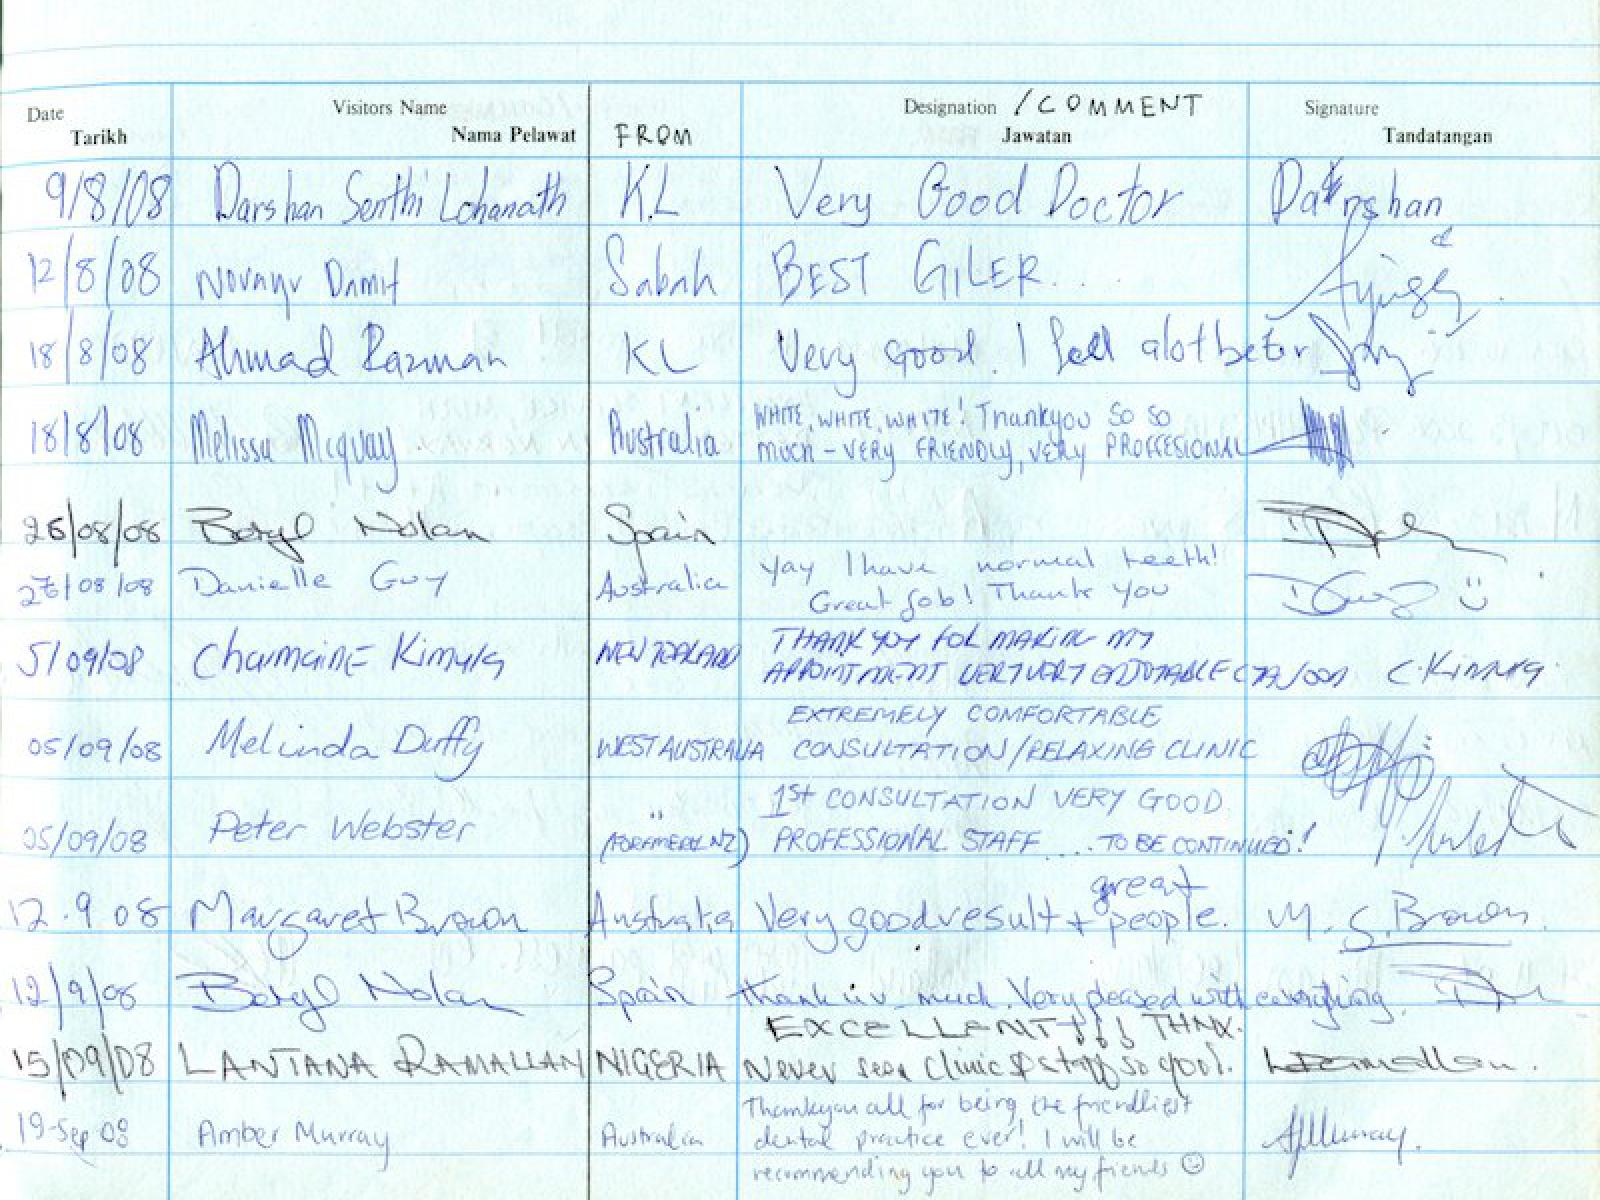 Date Visitors Name Designation / COMMENT Signature
Tarikh Nama Pelawat FROM Jawatan Tandatangan
9/8/08 Darshan Senthi Lohanath K.L Very Good Doctor Darshan
12/8/08 Damit Sabah BEST GILER...
18/8/08 Ahmad Razman KL Very good. I feel alot beter
18/8/08 Melissa Mcquay Australia WHITE, WHITE, WHITE! Thankyou SO SO
much - VERY FRIENDLY, VERY PROFFESIONAL
26/08/08 Beryl Nolan Spain
27/08/08 Danielle Guy Australia Yay I have normal teeth!
Great job! Thank you
5/09/08 Charmaine NEW ZEALAND THANK YOU FOR MAKING MY
APPOINTMENT VERY VERY ENJOYABLE
05/09/08 Melinda Duffy WEST AUSTRALIA EXTREMELY COMFORTABLE
CONSULTATION/RELAXING CLINIC
05/09/08 Peter Webster " (FORMERLY NZ) 1st CONSULTATION VERY GOOD
PROFESSIONAL STAFF .... TO BE CONTINUED!
12.9.08 Margaret Brown Australia Very good result + great people. M. S. Brown
12/9/08 Beryl Nolan Spain Thank much. Very pleased with everything.
15/09/08 LANTANA RAMALLAN NIGERIA EXCELLENT!!!
Never seen clinic & staff so good.
19-Sep 08 Amber Murray Australia Thankyou all for being the friendliest
dental practice ever! I will be
recommending you to all my friends